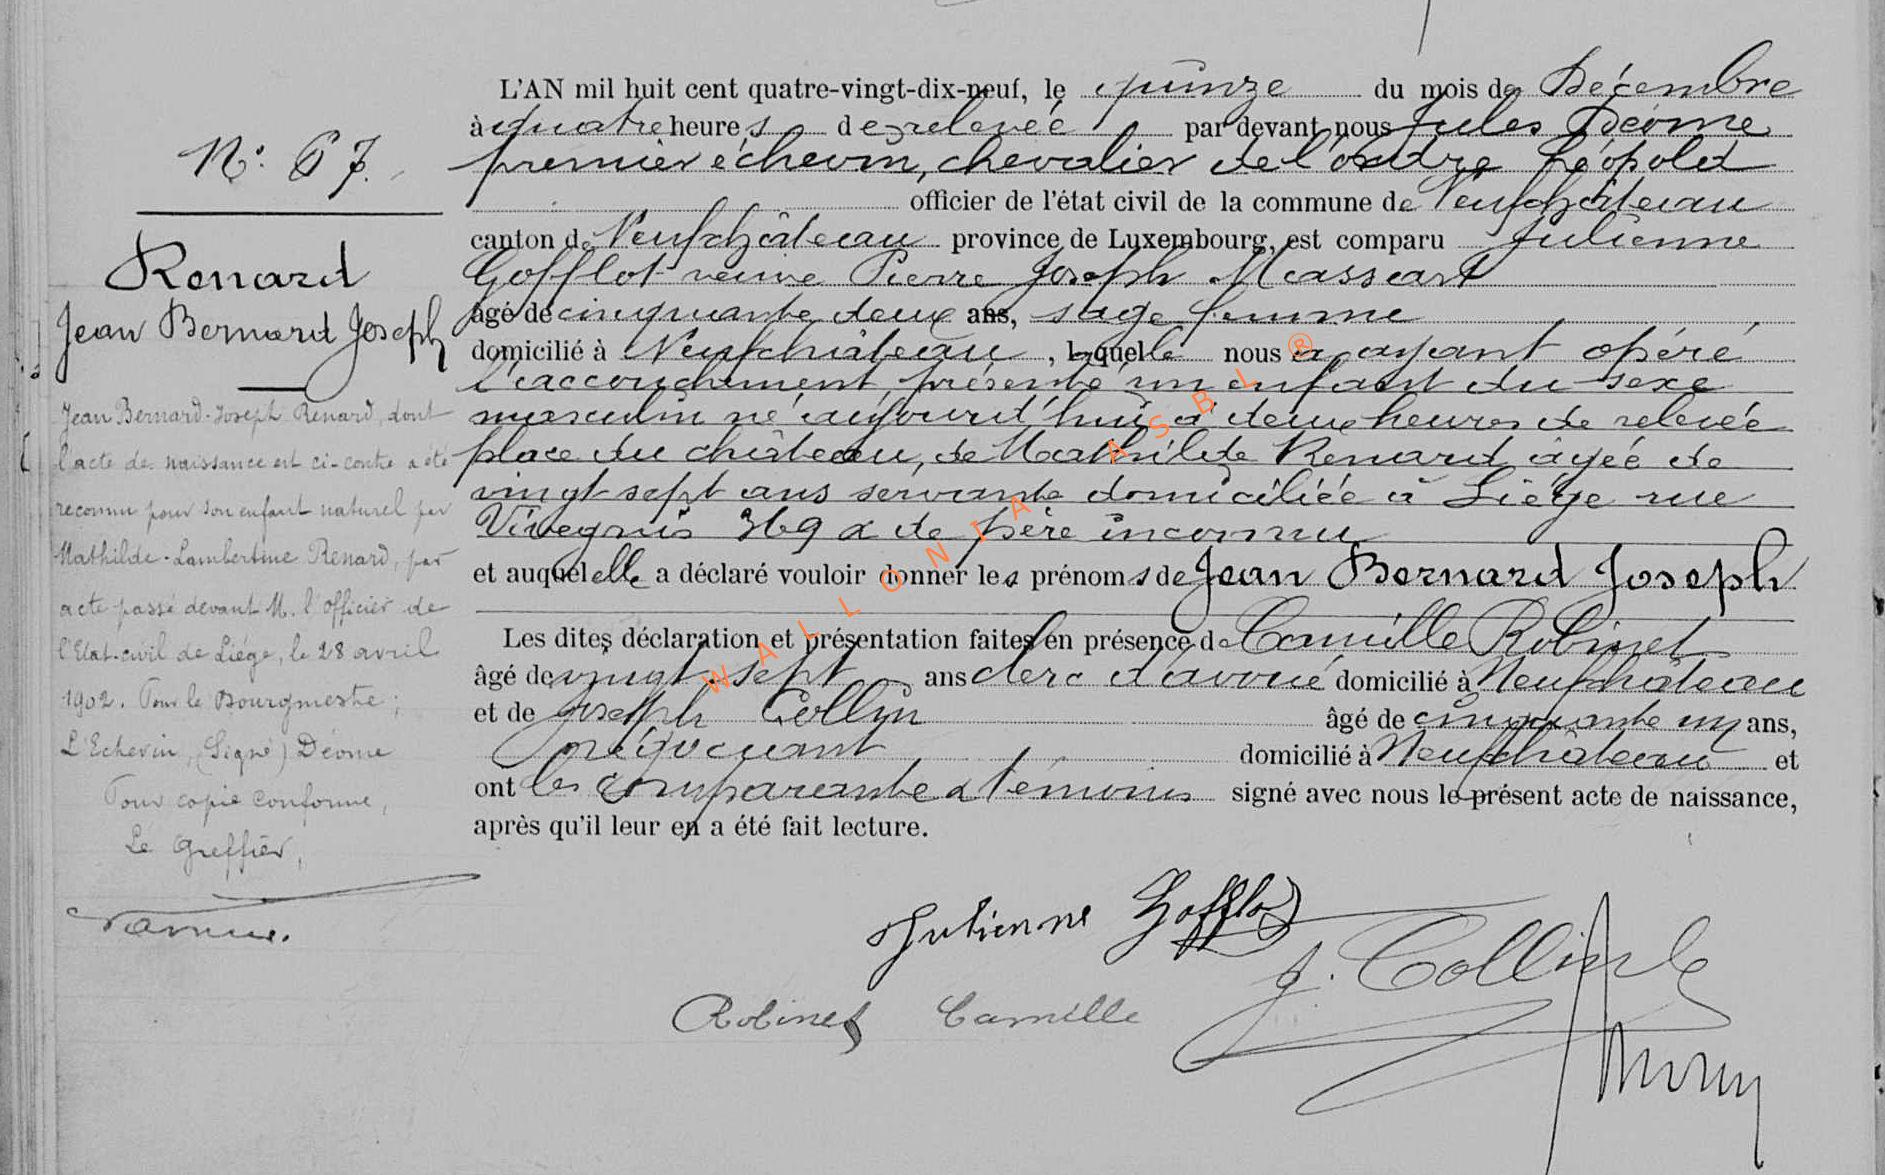 N° 67.
Renard
Jean Bernard Joseph
Jean Bernard-Joseph Renard, dont
l'acte de naissance est ci-contre a été
reconnu pour son enfant naturel par
Mathilde-Lambertine Renard, par
acte passé devant M. l'officier de
l'Etat-civil de Liége, le 28 avril
1902. Pour le Bourgmestre ;
L'Echevin, (Signé) Déome
Pour copie conforme,
Le Greffier,
L'AN mil huit cent quatre-vingt-dix-neuf, le quinze du mois de Décembre
à quatre heures de relevée par devant nous Jules Déome
premier échevin, chevalier de l'ordre Léopold
officier de l'état civil de la commune de Neufchâteau
canton de Neufchâteau province de Luxembourg, est comparu Julienne
Gofflot veuve Pierre Joseph Massart
âgé de cinquante deux ans, sage femme
domicilié à Neufchâteau, laquelle nous a, ayant opéré
l'accouchement, présenté un enfant du sexe
masculin né aujourd'hui à deux heures de relevée
place du château, de Mathilde Renard âgée de
vingt-sept ans servante domiciliée à Liége rue
Vivegnis 369 & de père inconnu
et auquel elle a déclaré vouloir donner les prénoms de Jean Bernard Joseph
Les dites déclaration et présentation faites en présence de Camille Robinet
âgé de vingt-sept ans clerc d'avoué domicilié à Neufchâteau
et de Joseph Collin âgé de cinquante un ans,
négociant domicilié à Neufchâteau et
ont les comparante & témoins signé avec nous le présent acte de naissance,
après qu'il leur en a été fait lecture.
Julienne Gofflot
J. Collin
Robinet Camille
WALLONIA ASBL ®